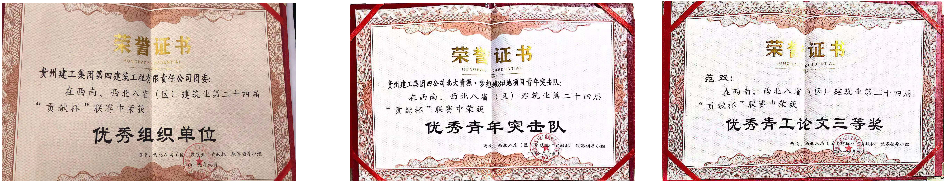 荣誉证书
贵州建工集团第四建筑工程有限责任公司团委:
在西南、西北八省(区)建筑业第二十四届
“贡献杯”联赛中荣获
优秀组织单位
荣誉证书
在西南、西北八省(区)建筑业第二十四届
“贡献杯”联赛中荣获
优秀青年突击队
荣誉证书
范双:
在西南、西北八省(区)建筑业第二十四届
“贡献杯”联赛中荣获
优秀青工论文三等奖